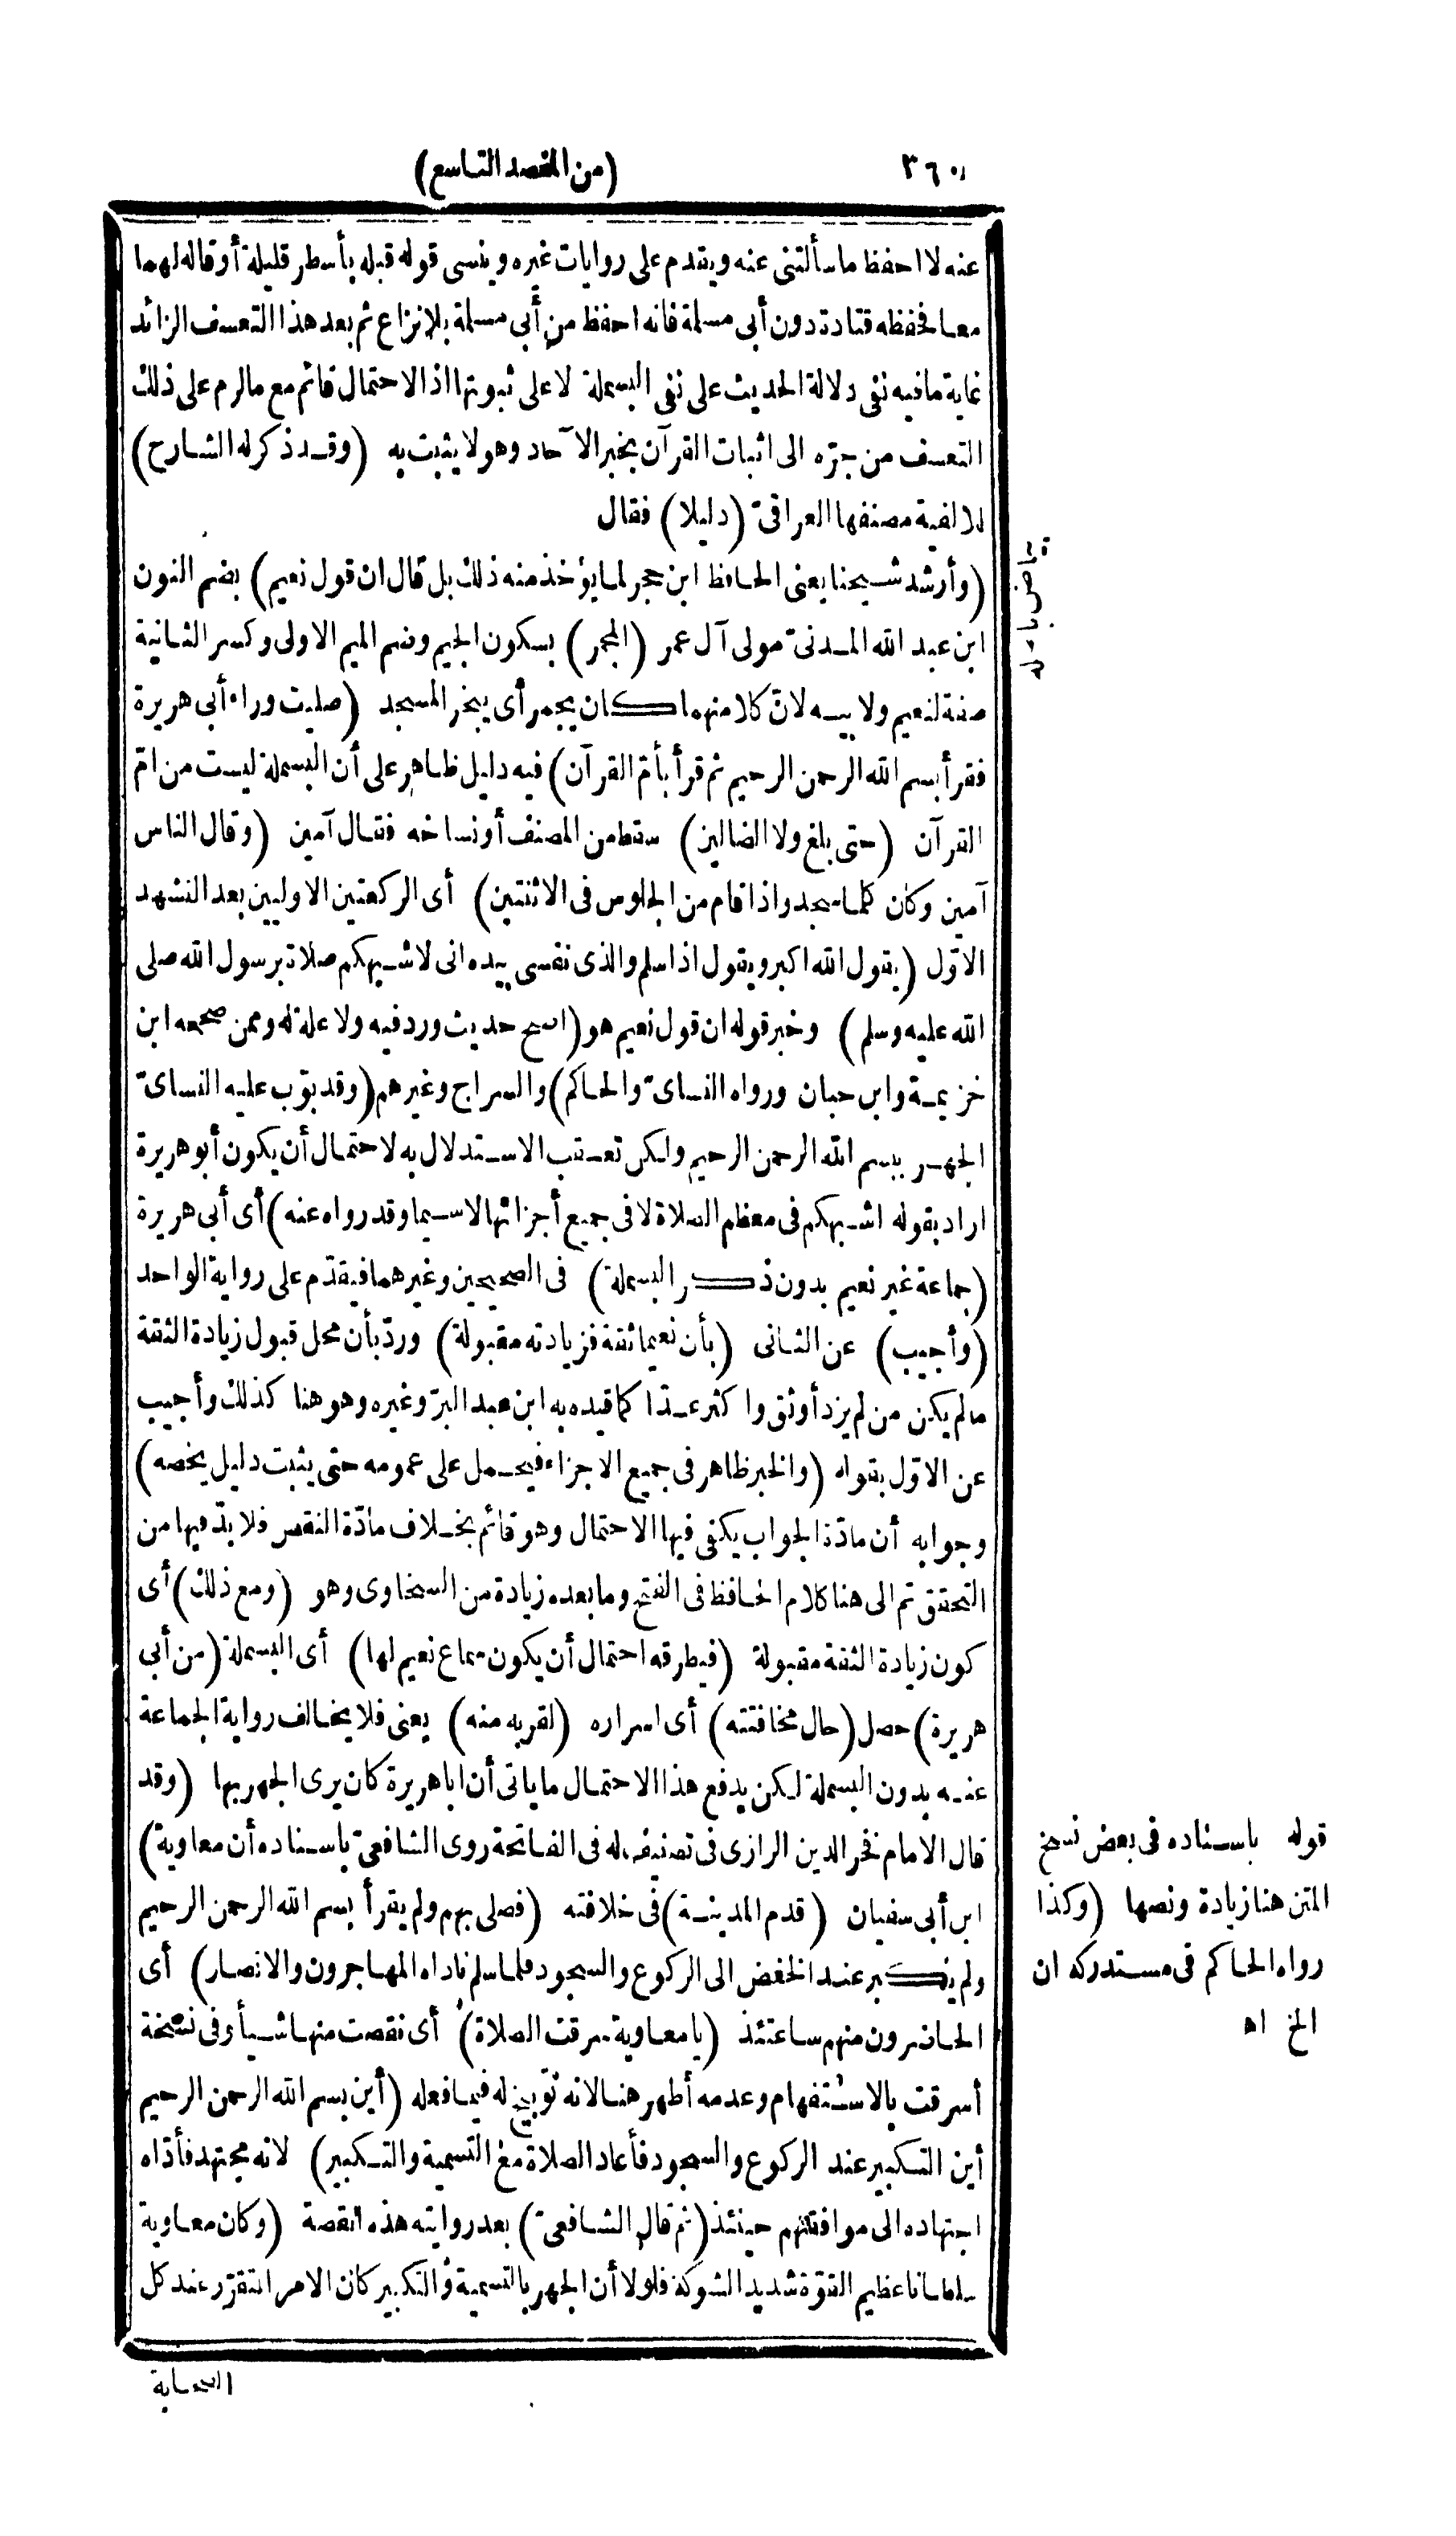 ٣٦٠
(من المقصد التاسع)
عنه لا احفظ ما سألتنى عنه ويقدم على روايات غيره وينسى قوله قبله بأسطر قليلة أو قاله لهما
معا فحفظه قتادة دون أبى مسلمة فانه احفظ من أبى مسلمة بلا نزاع ثم بعد هذا التعسف الزائد
غاية ما فيه نفى دلالة الحديث على نفى البسملة لا على ثبوتها اذ الاحتمال قائم مع ما لزم على ذلك
التعسف من جرّه الى اثبات القرآن بخبر الآحاد وهو لا يثبت به (وقد ذكر له الشارح)
للالفية مصنفها العراقىّ (دليلا) فقال
(وأرشد شيخنا يعنى الحافظ ابن حجر لما يؤخذ منه ذلك بل قال ان قول نعيم) بضم النون
ابن عبد الله المدنىّ مولى آل عمر (المجمر) بسكون الجيم وضم الميم الاولى وكسر الثانية
صفة لنعيم ولابيه لانّ كلا منهما كان يجمر أى يبخر المسجد (صليت وراء أبى هريرة
فقرأ بسم الله الرحمن الرحيم ثم قرأ بأمّ القرآن) فيه دليل ظاهر على أن البسملة ليست من امّ
القرآن (حتى بلغ ولا الضالين) سقط من المصنف أو نساخه فقال آمين (وقال الناس
آمين وكان كلما سجد واذا قام من الجلوس فى الاثنتين) أى الركعتين الاوليين بعد التشهد
الاوّل (يقول الله اكبر ويقول اذا سلم والذى نفسى بيده انى لاشبهكم صلاة برسول الله صلى
الله عليه وسلم) وخبر قوله ان قول نعيم هو (اصح حديث ورد فيه ولا علة له وممن صححه ابن
خزيمة وابن حبان ورواه النساىّ والحاكم) والسراج وغيرهم (وقد بوّب عليه النساىّ
الجهر ببسم الله الرحمن الرحيم ولكن تعقب الاستدلال به لاحتمال أن يكون أبو هريرة
اراد بقوله اشبهكم فى معظم الصلاة لا فى جميع أجزائها لاسيما وقد رواه عنه) أى أبى هريرة
(جماعة غير نعيم بدون ذكر البسملة) فى الصحيحين وغيرهما فيقدّم على رواية الواحد
(وأجيب) عن الثانى (بأن نعيما ثقة فزيادته مقبولة) وردّ بأن محل قبول زيادة الثقة
ما لم يكن من لم يزد أوثق واكثر عددا كما قيده به ابن عبد البرّ وغيره وهو هنا كذلك وأجيب
عن الاوّل بقوله (والخبر ظاهر فى جميع الاجزاء فيحمل على عمومه حتى يثبت دليل يخصه)
وجوابه أن مادّة الجواب يكفى فيها الاحتمال وهو قائم بخلاف مادّة النقض فلا بدّ فيها من
التحقق تم الى هنا كلام الحافظ فى الفتح وما بعده زيادة من السخاوى وهو (ومع ذلك) أى
كون زيادة الثقة مقبولة (فيطرقه احتمال أن يكون سماع نعيم لها) أى البسملة (من أبى
هريرة) حصل (حال مخافتته) أى اسراره (لقربه منه) يعنى فلا يخالف رواية الجماعة
عنه بدون البسملة لكن يدفع هذا الاحتمال ما ياتى أن ابا هريرة كان يرى الجهر بها (وقد
قال الامام فخر الدين الرازى فى تصنيف له فى الفاتحة روى الشافعىّ باسناده أن معاوية)
ابن أبى سفيان (قدم المدينة) فى خلافته (فصلى بهم ولم يقرأ بسم الله الرحمن الرحيم
ولم يكبر عند الخفض الى الركوع والسجود فلما سلم ناداه المهاجرون والانصار) أى
الحاضرون منهم ساعتئذ (يا معاوية سرقت الصلاة) أى نقصت منها شيأ وفى نسخة
أسرقت بالاستفهام وعدمه أظهر هنا لانه توبيخ له فيما فعله (أين بسم الله الرحمن الرحيم
أين التكبير عند الركوع والسجود فأعاد الصلاة مع التسمية والتكبير) لانه مجتهد فأدّاه
اجتهاده الى موافقتهم حينئذ (ثم قال الشافعىّ) بعد روايته هذه القصة (وكان معاوية
سلطانا عظيم القوّة شديد الشوكة فلولا أن الجهر بالتسمية والتكبير كان الامر المتقرّر عند كل
الصحابة
بياض باصله
قوله باسناده فى بعض نسخ
المتن هنا زيادة ونصها (وكذا
رواه الحاكم فى مستدركه ان
الخ اه